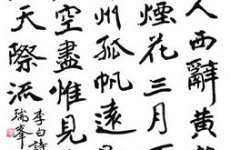 人西辭黃
煙花三月下
州孤帆遠
空盡惟見
天際流
李白詩
瑞峯